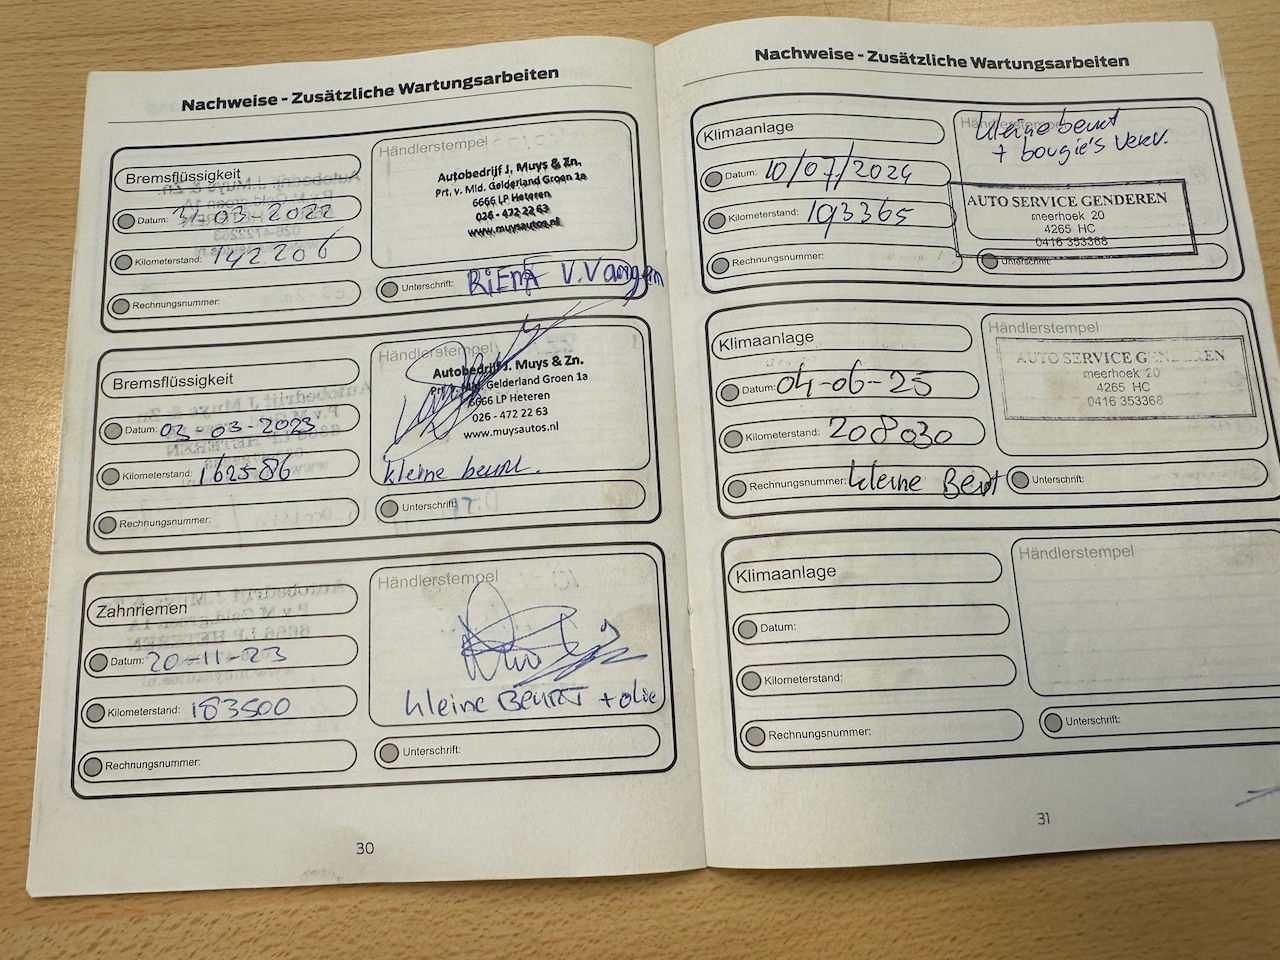 Nachweise - Zusätzliche Wartungsarbeiten
Bremsflüssigkeit
Datum: 31-03-2022
Kilometerstand: 142206
Rechnungsnummer:
Händlerstempel
Autobedrijf J. Muys & Zn.
Prt. v. Mld. Gelderland Groen 1a
6666 LP Heteren
026 - 472 22 63
www.muysautos.nl
Unterschrift:
Bremsflüssigkeit
Datum: 03-03-2023
Kilometerstand: 162586
Rechnungsnummer:
Händlerstempel
Autobedrijf J. Muys & Zn.
Gelderland Groen 1a
6666 LP Heteren
026 - 472 22 63
www.muysautos.nl
kleine beurt.
Unterschrift:
Zahnriemen
Datum: 20-11-23
Kilometerstand: 183500
Rechnungsnummer:
Händlerstempel
kleine BEURT + olie
Unterschrift:
30
Nachweise - Zusätzliche Wartungsarbeiten
Klimaanlage
Datum: 10/07/2024
Kilometerstand: 193365
Rechnungsnummer:
Händlerstempel
kleine beurt
+ bougie's verv.
AUTO SERVICE GENDEREN
meerhoek 20
4265 HC
0416 353368
Unterschrift:
Klimaanlage
Datum: 04-06-25
Kilometerstand: 208030
Rechnungsnummer: kleine Beurt
Händlerstempel
AUTO SERVICE GENDEREN
meerhoek 20
4265 HC
0416 353368
Unterschrift:
Klimaanlage
Datum:
Kilometerstand:
Rechnungsnummer:
Händlerstempel
Unterschrift:
31